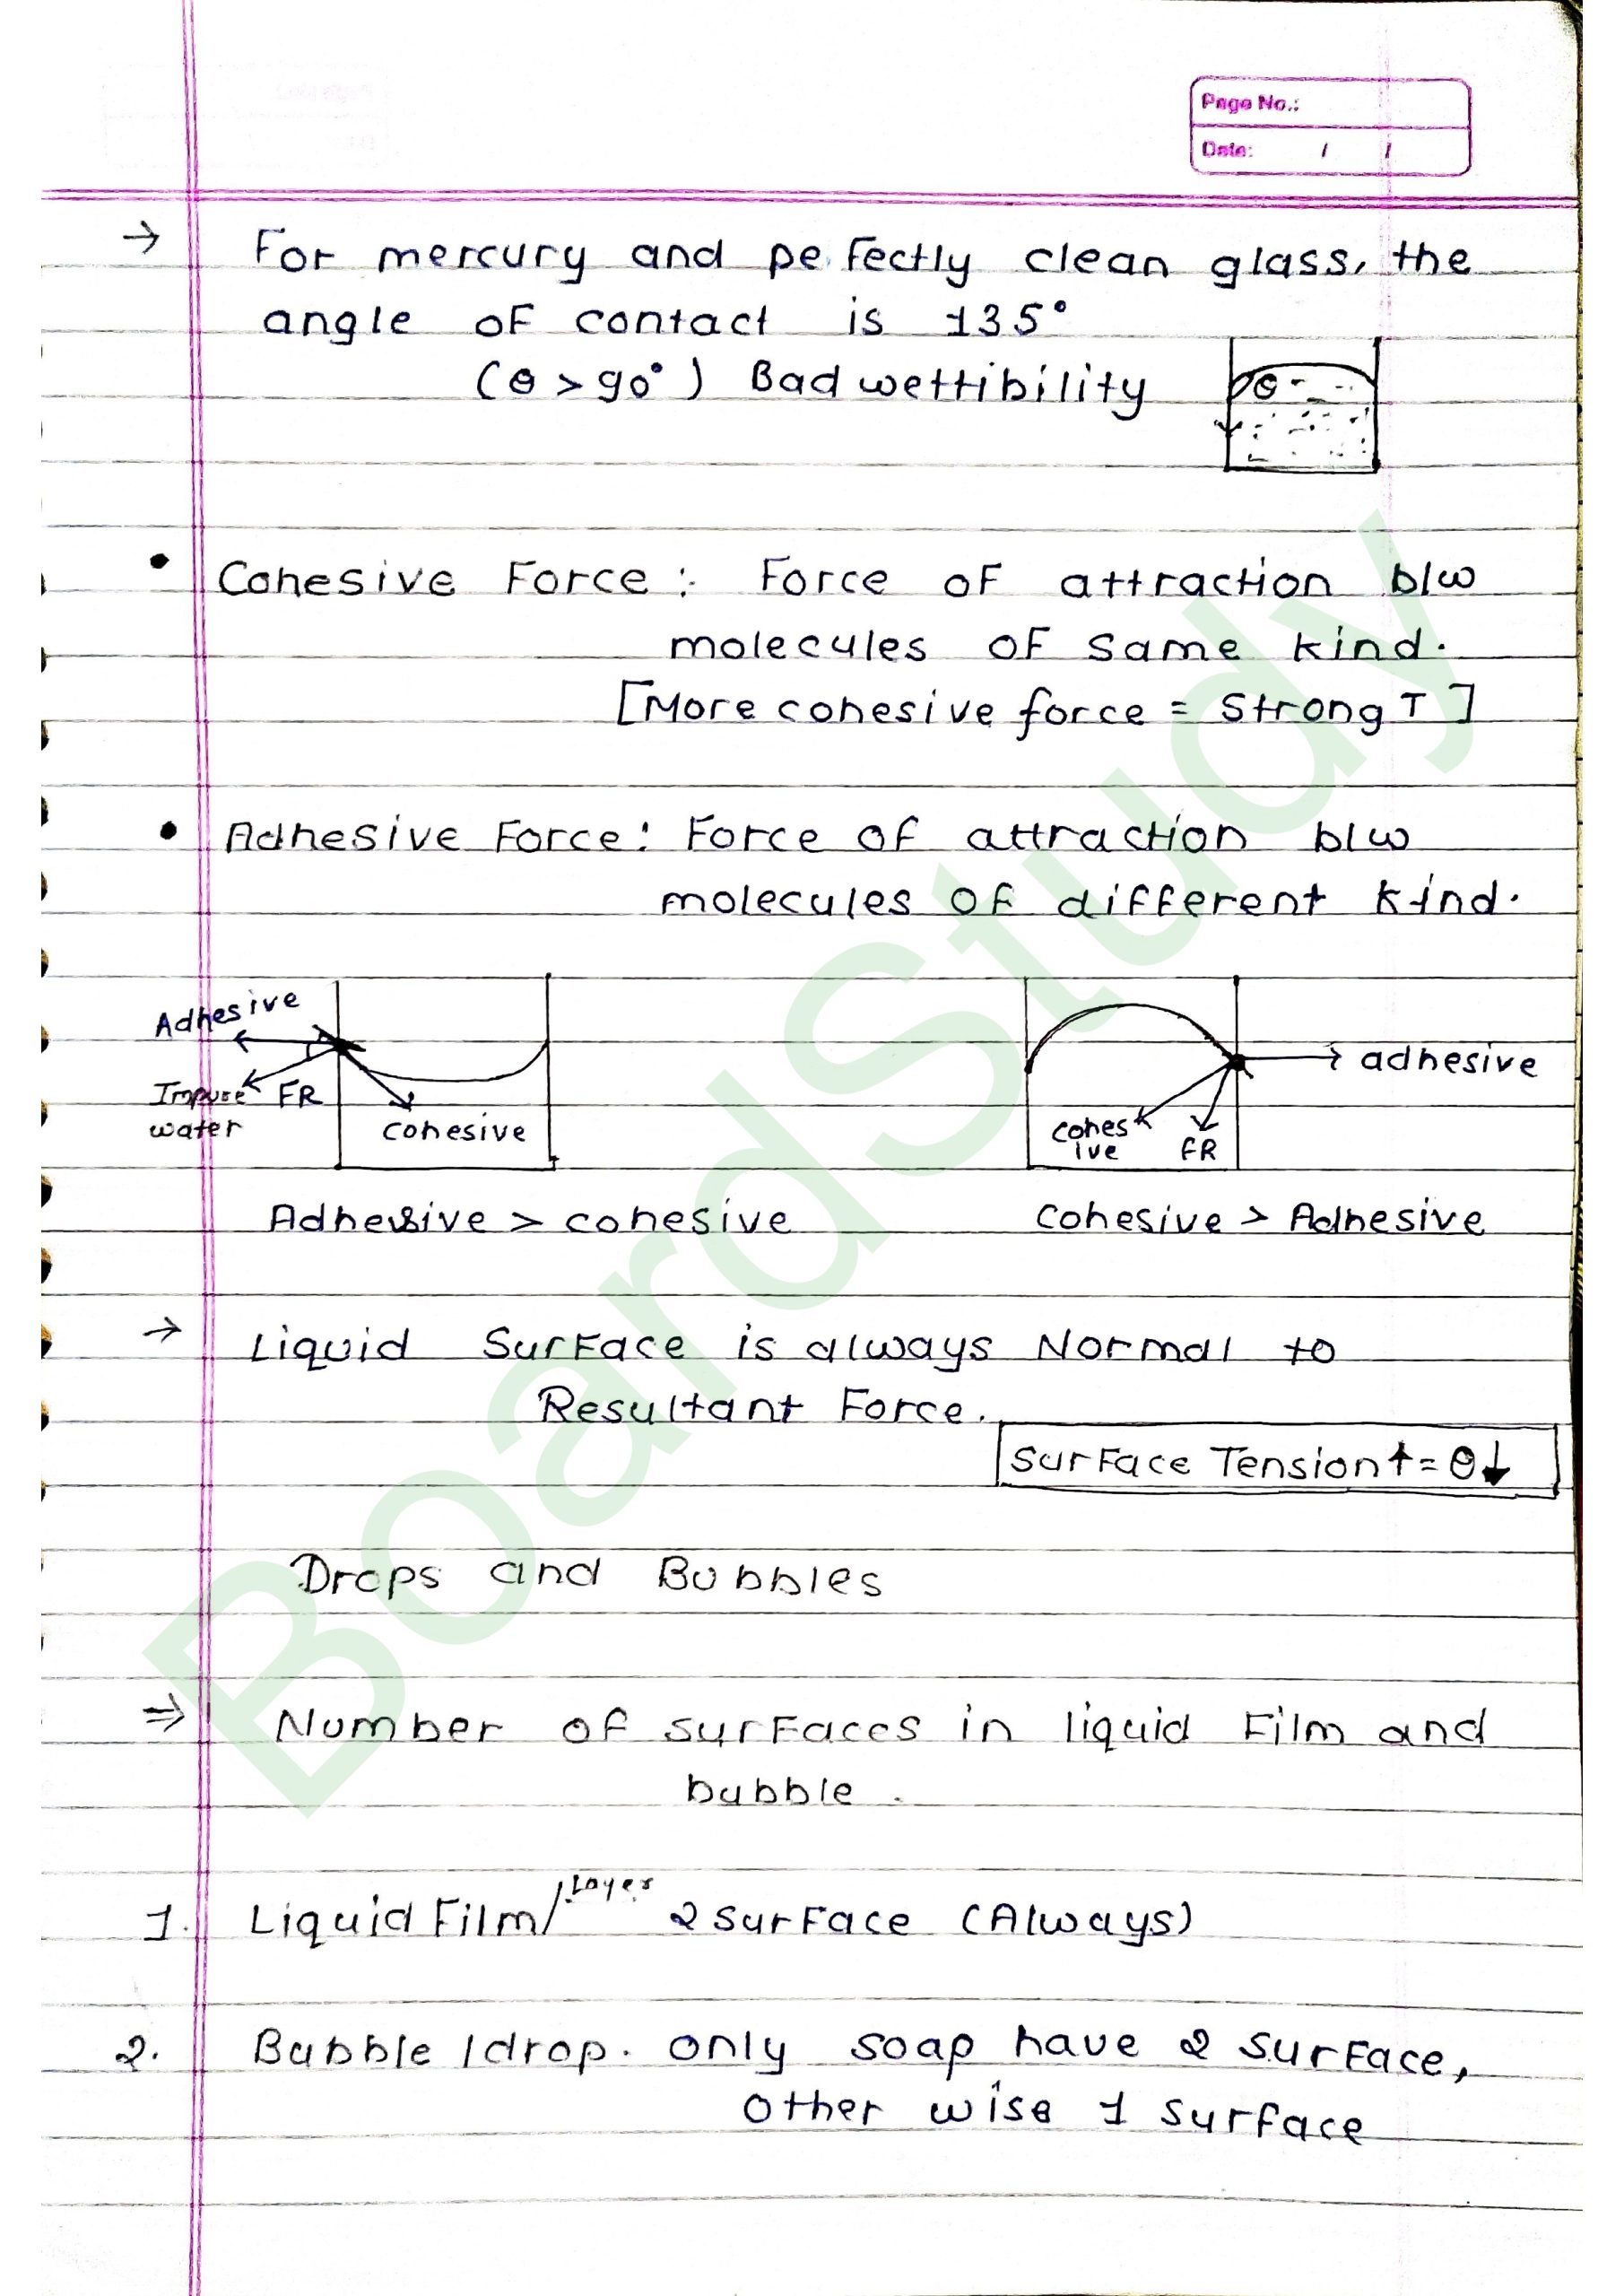 Page No.:
Date: / /
→ For mercury and pe fectly clean glass, the
angle of contact is 135°
(θ > 90°) Bad wettibility
θ
• Cohesive Force : Force of attraction b/w
molecules of same kind.
[More cohesive force = Strong T ]
• Adhesive Force : Force of attraction b/w
molecules of different kind.
Adhesive
Impure water
FR
cohesive
adhesive
cohes
ive
FR
Adhesive > cohesive
Cohesive > Adhesive
→ Liquid Surface is always Normal to
Resultant Force.
Surface Tension↑ = θ↓
Drops and Bubbles
⇒ Number of surfaces in liquid Film and
bubble .
1. Liquid Film/Layer 2 surface (Always)
2. Bubble / drop. only soap have 2 surface,
other wise 1 surface
BoardStudy